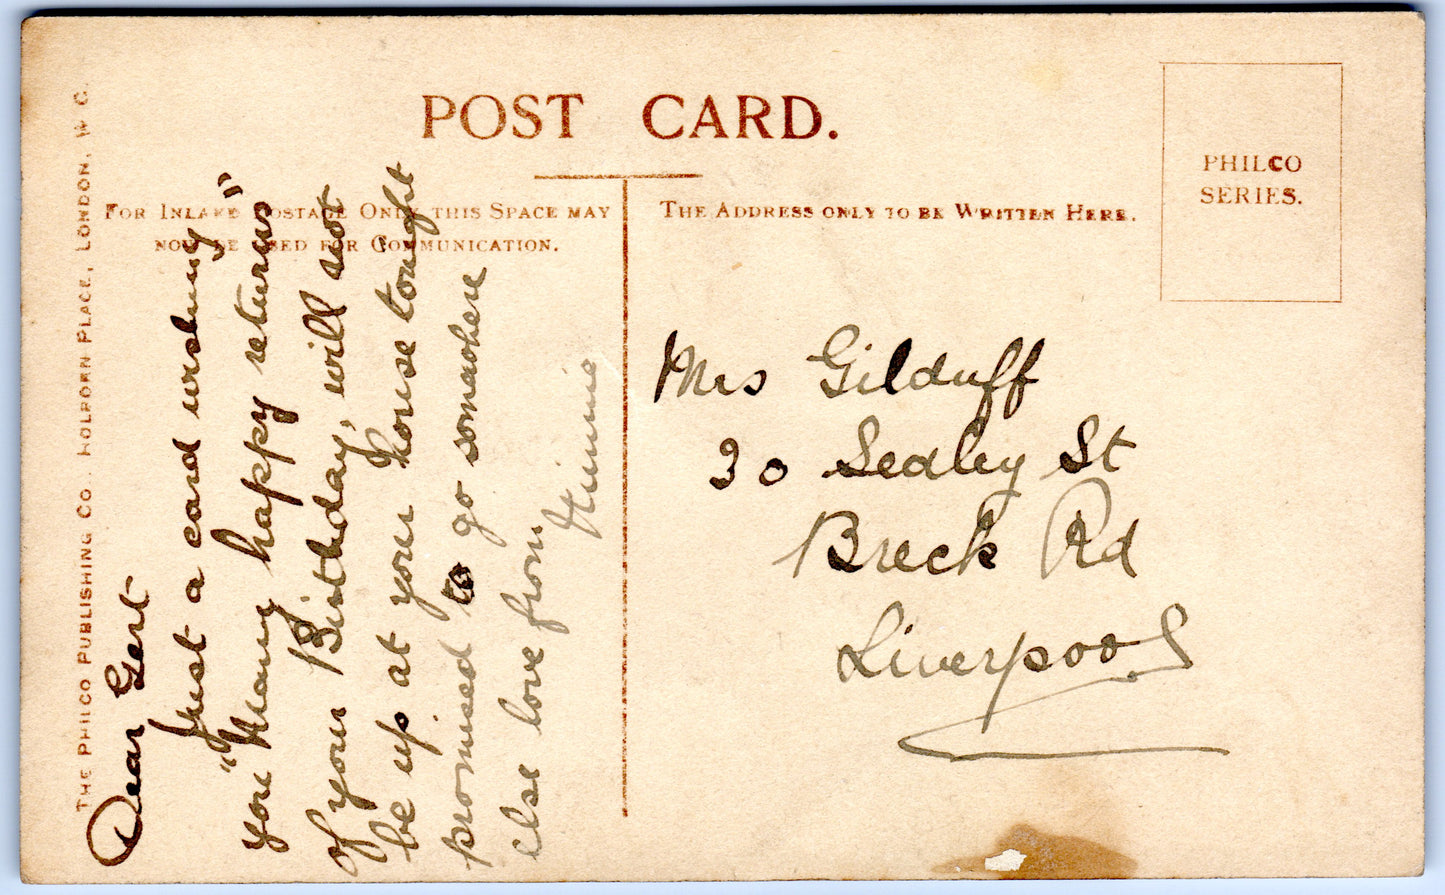 POST CARD.
FOR INLAND POSTAGE ONLY THIS SPACE MAY
NOW BE USED FOR COMMUNICATION.
THE ADDRESS ONLY TO BE WRITTEN HERE.
PHILCO
SERIES.
THE PHILCO PUBLISHING CO., HOLBORN PLACE, LONDON, W C.
Dear Gert
Just a card wishing
you "Many happy returns"
of your Birthday, will not
be up at your house tonight
promised to go somewhere
else love from
Minnie
Mrs Gilduff
30 Sedley St
Breck Rd
Liverpool